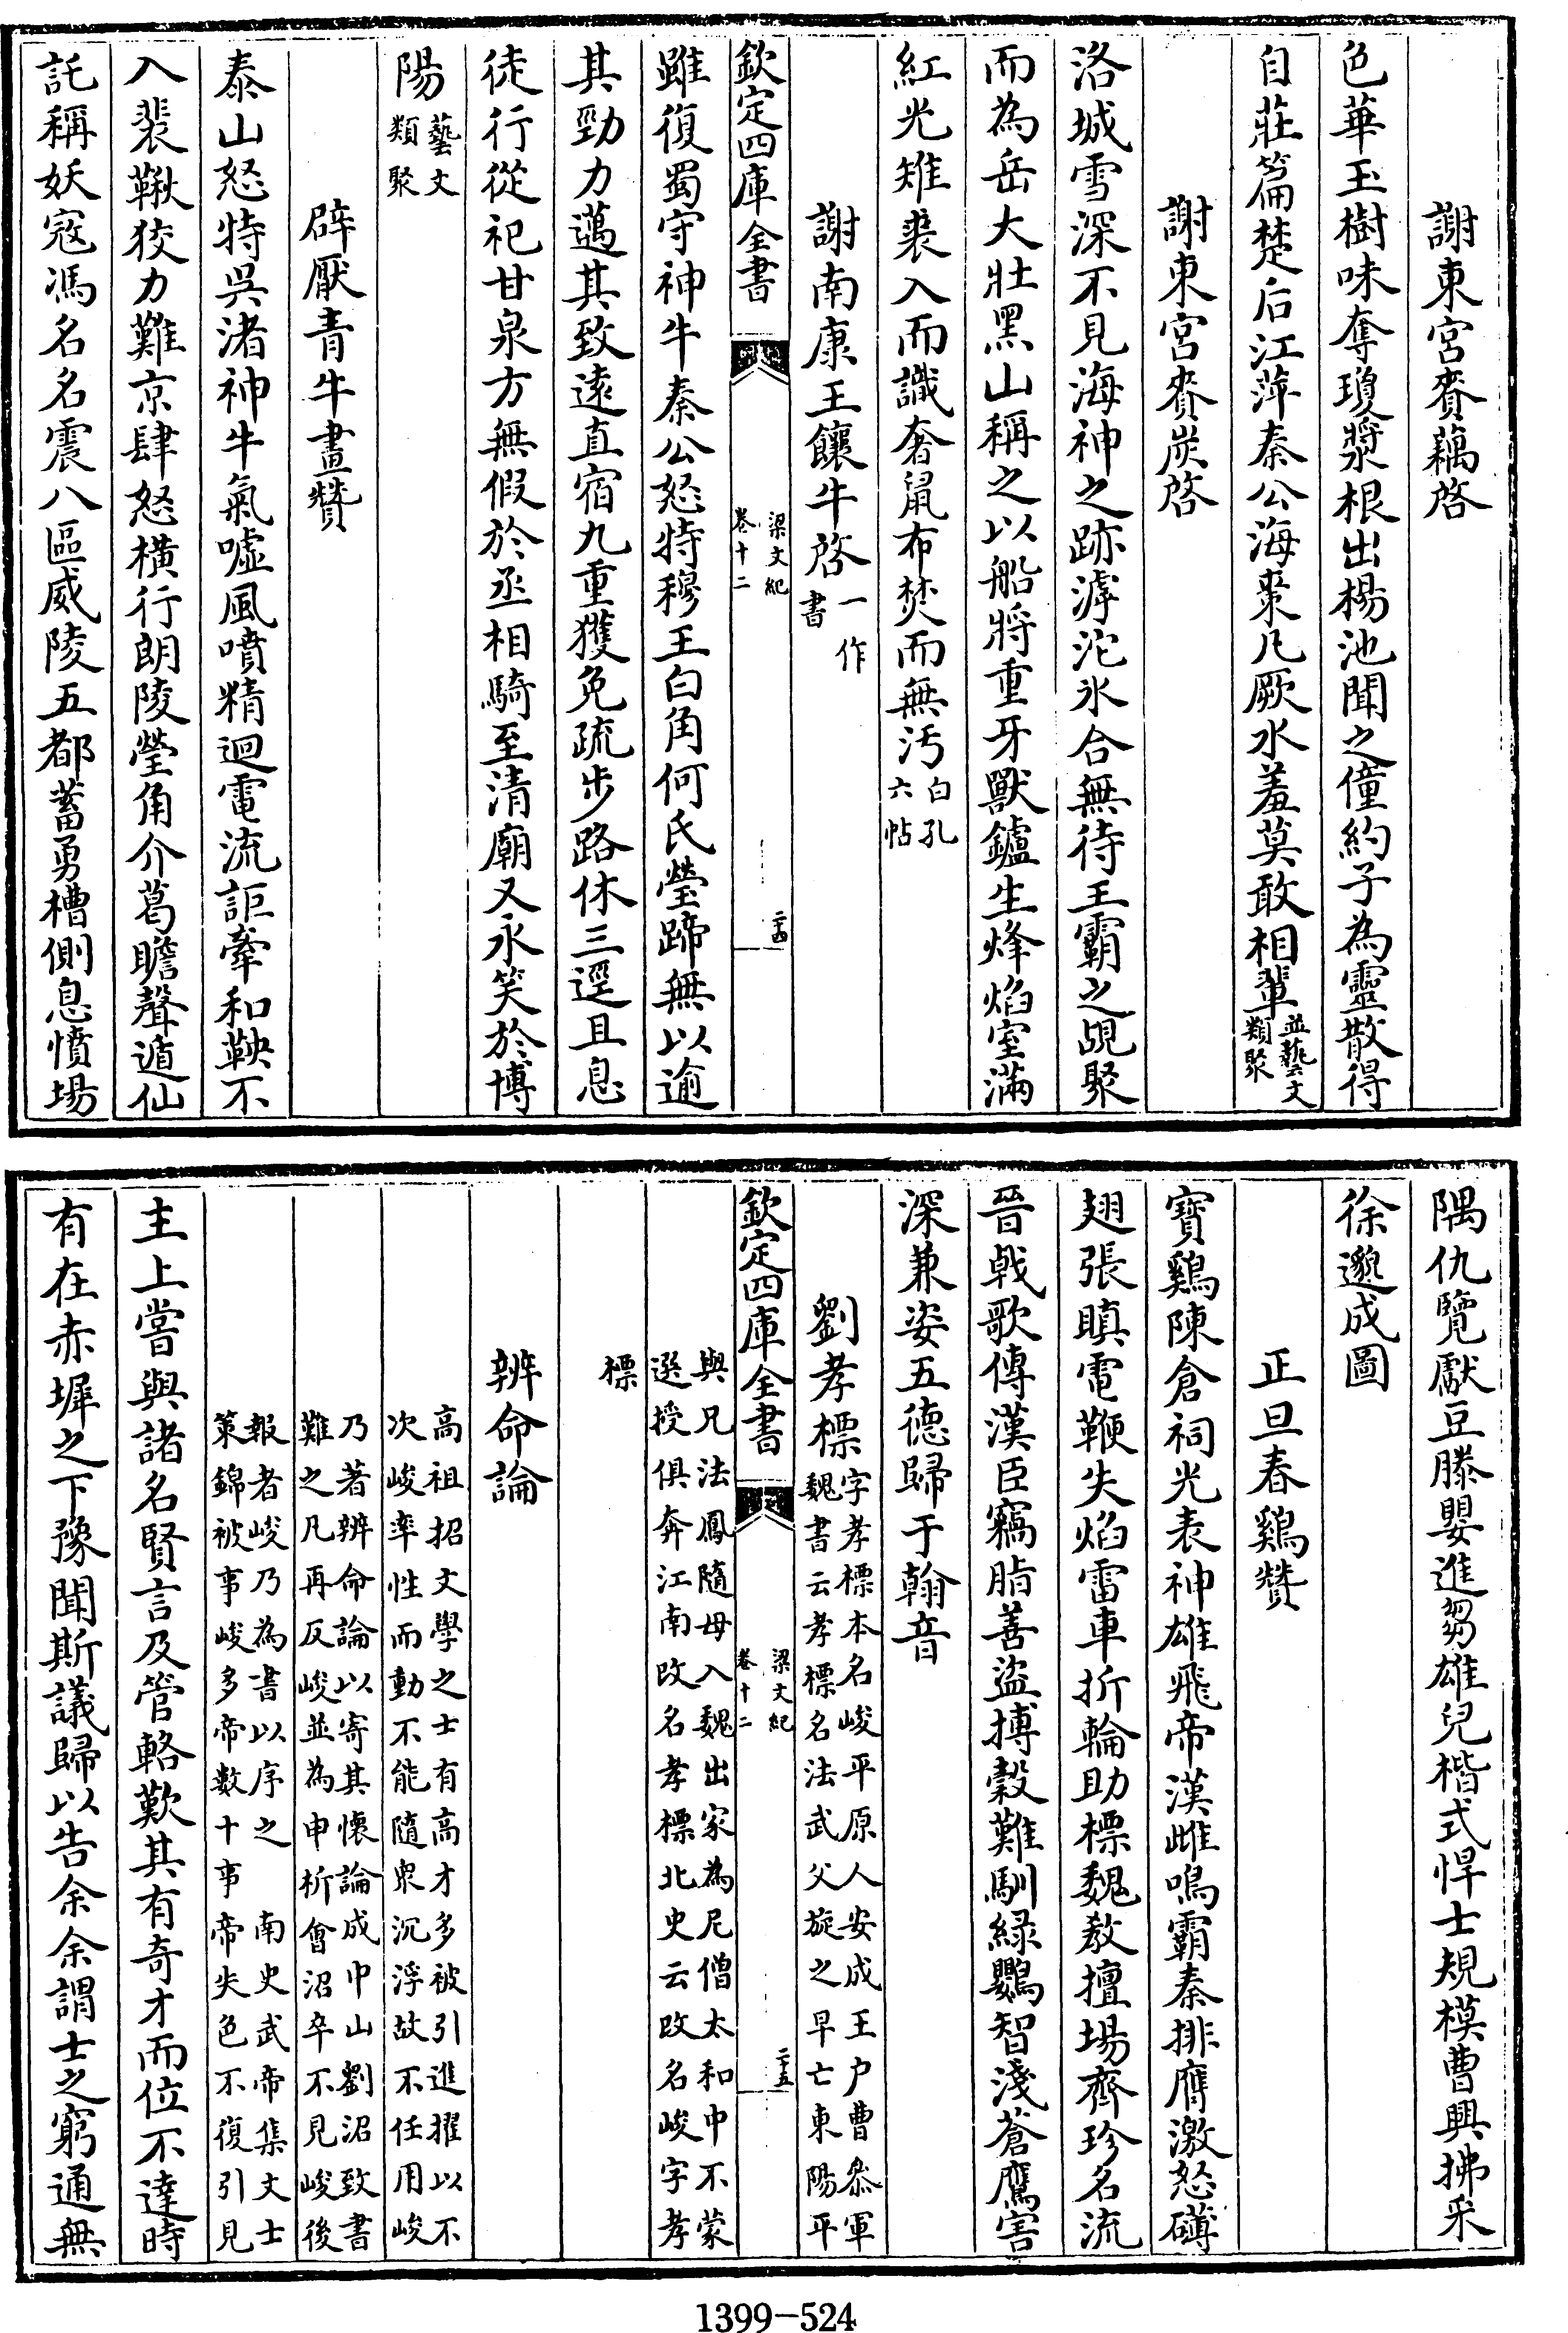 謝東宮賚藕啓
色華玉樹味奪瓊漿根出楊池聞之僮約子為靈散得
自莊篇楚后江萍秦公海棗凡厥水羞莫敢相輩並藝文類聚
謝東宮賚炭啓
洛城雪深不見海神之跡滹沱氷合無待王霸之覘聚
而為岳大壯黑山稱之以船將重牙獸鑪生烽焰室滿
紅光雉裘入而識奢鼠布焚而無汚白孔六帖
謝南康王饟牛啓一作書
欽定四庫全書
梁文紀
卷十二
二十四
雖復蜀守神牛秦公怒特穆王白角何氏瑩蹄無以逾
其勁力邁其致遠直宿九重獲免疏步路休三逕且息
徒行從祀甘泉方無假於丞相騎至清廟又永笑於博
陽藝文類聚
辟厭青牛畫贊
泰山怒特吳渚神牛氣噓風噴精迴電流詎牽和鞅不
入裴鞦狡力難京肆怒橫行朗陵瑩角介葛瞻聲遁仙
託稱妖寇馮名名震八區威陵五都蓄勇槽側息憤場
隅仇覽獻豆滕嬰進芻雄兒楷式悍士規模曹興拂采
徐邈成圖
正旦春鷄贊
寶鷄陳倉祠光表神雄飛帝漢雌鳴霸秦排膺激怒礴
翅張瞋電鞭失焰雷車折輪助標魏敖擅場齊珍名流
晉戟歌傳漢臣竊脂善盜搏穀難馴綠鸚智淺蒼鷹害
深兼姿五德歸于翰音
劉孝標字孝標本名峻平原人安成王户曹叅軍
魏書云孝標名法武父旋之早亡東陽平
欽定四庫全書
梁文紀
卷十二
二十五
與兄法鳳隨母入魏出家為尼僧太和中不蒙
選授俱奔江南改名孝標北史云改名峻字孝
標
辨命論
高祖招文學之士有高才多被引進擢以不
次峻率性而動不能隨衆沉浮故不任用峻
乃著辨命論以寄其懷論成中山劉沼致書
難之凡再反峻並為申析會沼卒不見峻後
報者峻乃為書以序之　南史武帝集文士
策錦被事峻多帝數十事帝失色不復引見
主上嘗與諸名賢言及管輅歎其有奇才而位不達時
有在赤墀之下豫聞斯議歸以告余余謂士之窮通無
1399-524